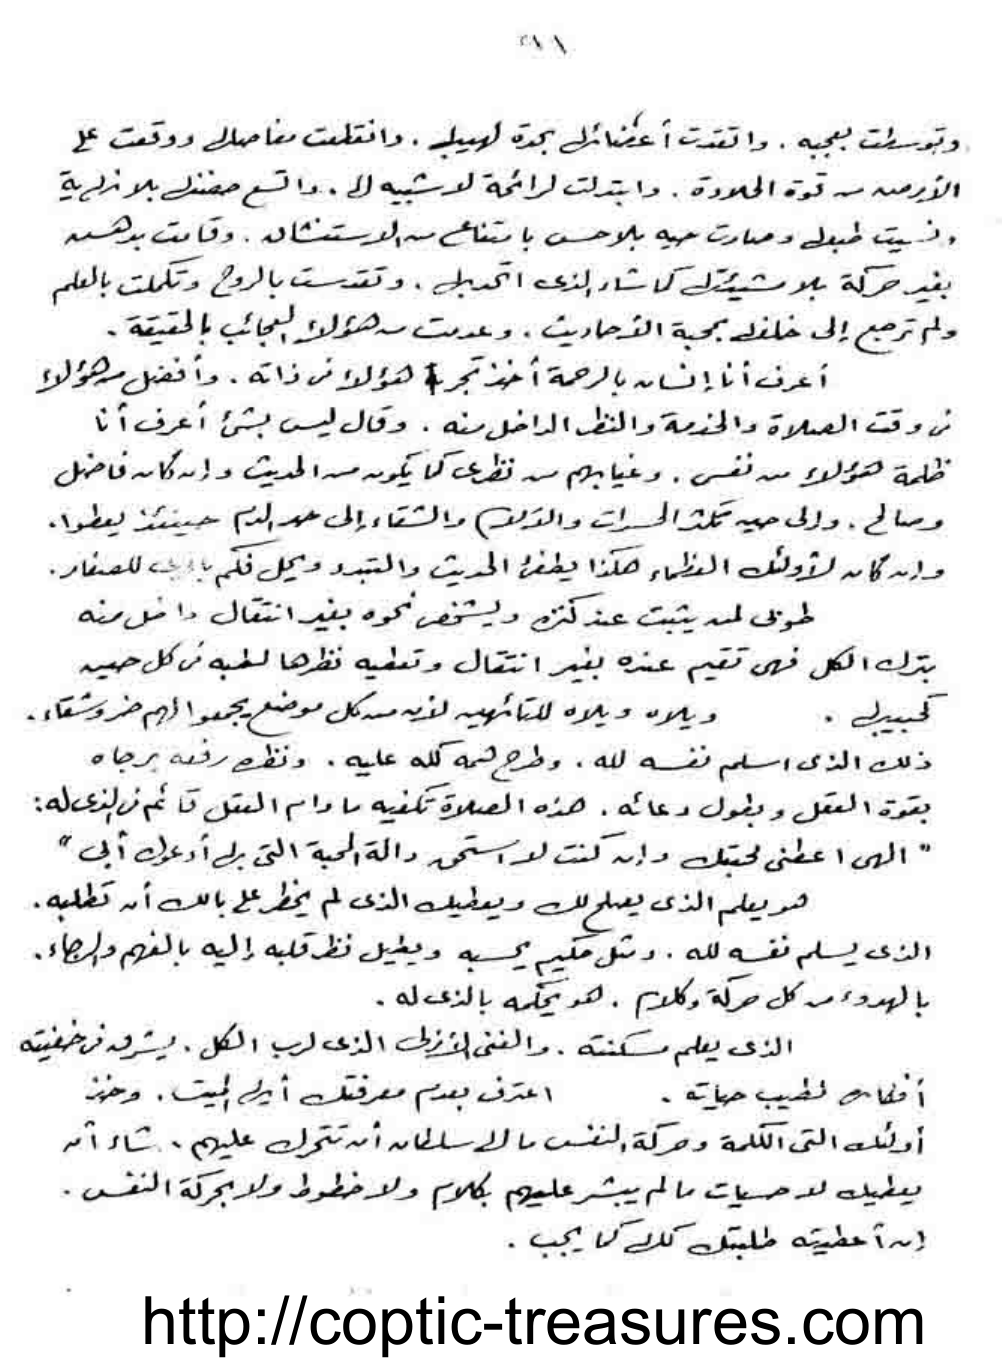 ٢١١
وتوسطت بعجبه . واتقدت أعضائها بحدة لهيبك . وانقطعت مفاصلها ووقعت على
الأرض من قوة الحلاوة . وابتدلت لرائحة لا شبيه لها . واتسع بلا نهاية
ونسيت طبعها وصارت حيه بلا حس بامتناع من الاستنشاق . وقامت بدهش
بغير حركة بلا مشيئتها كما شاء الذى اتحد بها . وتقدست بالروح وتكملت بالعلم
ولم ترجع إلى خلفها بمحبة الأحاديث . وعدمت من هؤلاء العجائب بالحقيقة .
أعرف أنا إنسان بالرحمة أخذ تجربة هؤلاء فى ذاته . وأفضل من هؤلاء
فى وقت الصلاة والخدمة والنظر الداخل منه . وقال ليس بشئ أعرف أنا
ظلمة هؤلاء من نفسى . وغيابهم من نظرى كما يكون من الحديث وإن كان فاضل
وصالح . وإلى حين تكثر الحسرات والآلام والشقاء إلى حد الدم حينئذ يعطوا .
وإن كان لأولئك العظماء هكذا يطفئ الحديث والتبدد ويحل فكم للصغار .
طوبى لمن يثبت عند كنزه ويشخص نحوه بغير انتقال داخل منه
بترك الكل فهى تقيم عنده بغير انتقال وتعطيه نظرها لطبه فى كل حين
كحبيبها . ويلاه ويلاه للتائهين لأن من كل موضع يجمعوا لهم ضر وشقاء .
ذلك الذى اسلم نفسه لله . وطرح همه كله عليه . ونظره رفعه برجاه
بقوة العقل وبطول دعائه . هذه الصلاة تكفيه ما دام العقل قائم فى الذى له :
" الهى اعطنى محبتك وإن كنت لا استحق دالة المحبة التى بها أدعوك أبى "
هو يعلم الذى يصلح لك ويعطيك الذى لم يخطر على بالك أن تطلبه .
الذى يسلم نفسه لله . ومثل حكيم يحسبه ويطيل نظر قلبه إليه بالفهم والرجاء .
بالهدوء من كل حركة وكلام . هو يحكمه بالذى له .
الذى يعلم مسكنته . والغنى الأزلى الذى لرب الكل . يشرق فى خفيته
أفكاره لطيب حياته . اعترف بعدم معرفتك أيها الميت . وخذ
أولئك التى الكلمة وحركة النفس ما لها سلطان أن تتحرك عليهم . شاء أن
يعطيك لا حسيات ما لم يبشر عليهم بكلام ولا خطوط ولا بحركة النفس .
إن أعطيته طلبتك كلها كما يجب .
http://coptic-treasures.com